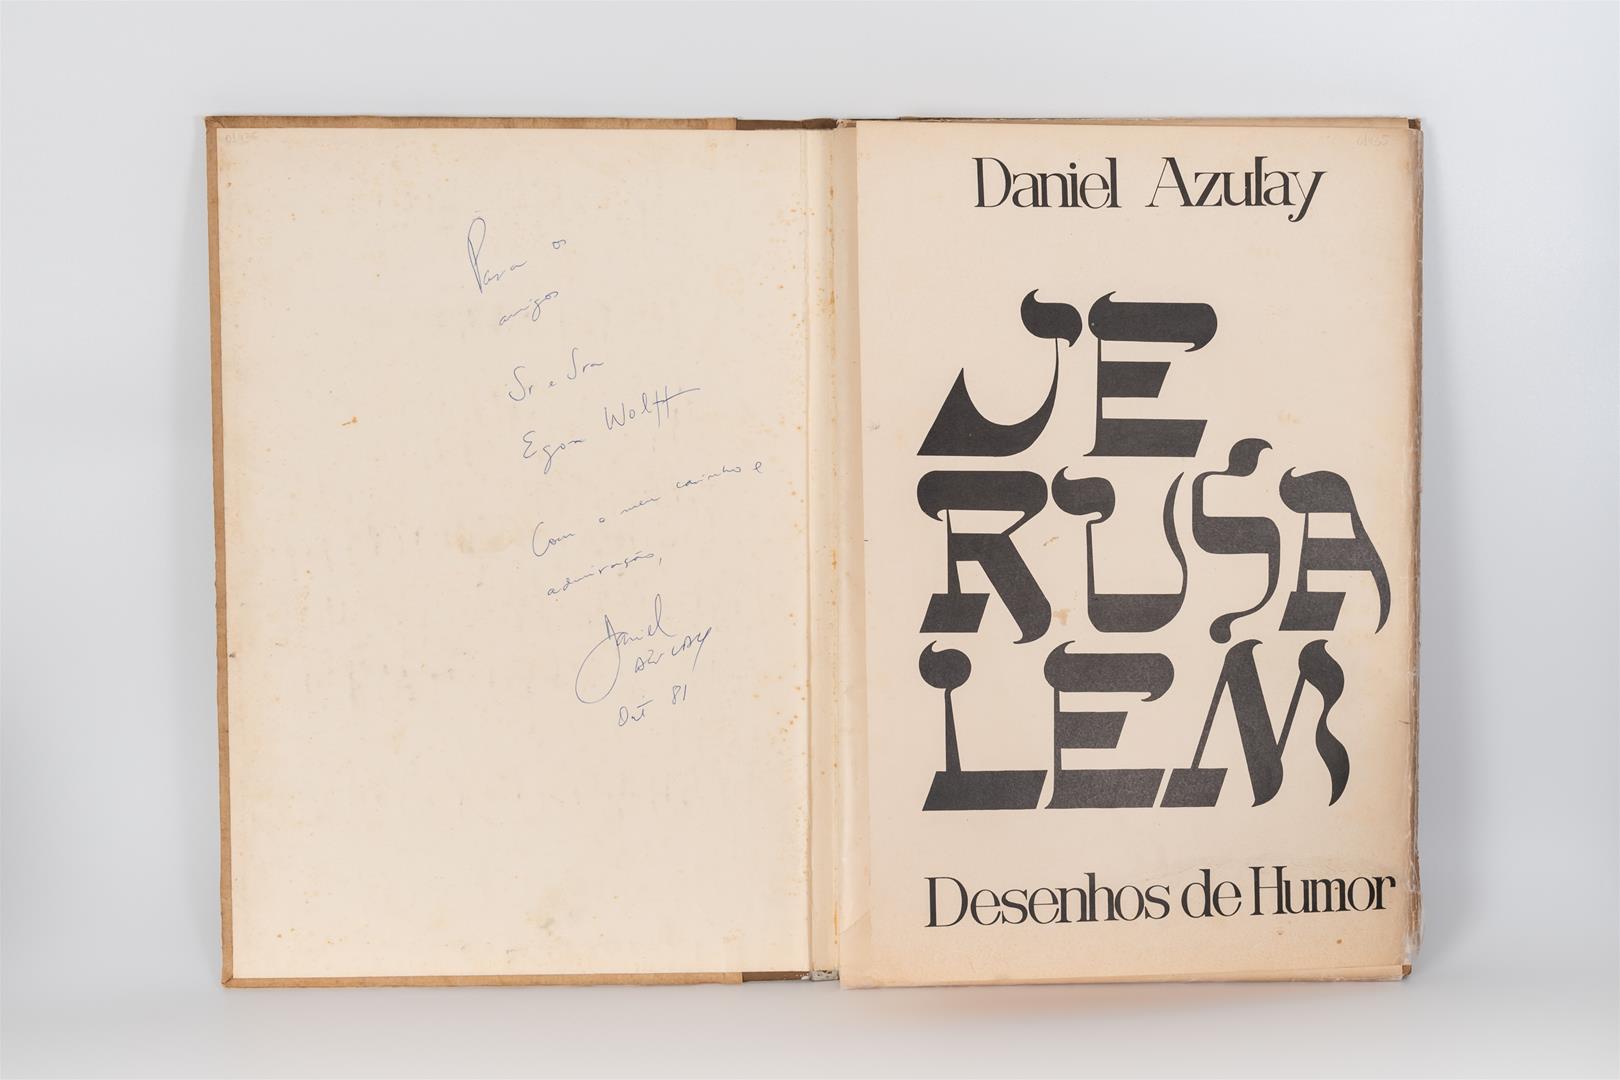 Para os
amigos
Sr e Sra
Egon Wolff
Com o meu carinho e
admiração,
Daniel
AZULAY
Out 81
Daniel Azulay
JE
RUSA
LEM
Desenhos de Humor